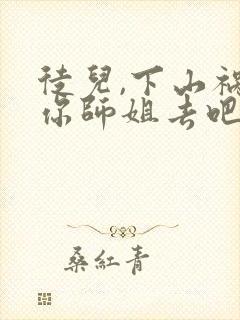 徒兒,下山禍
你師姐去吧
桑紅青